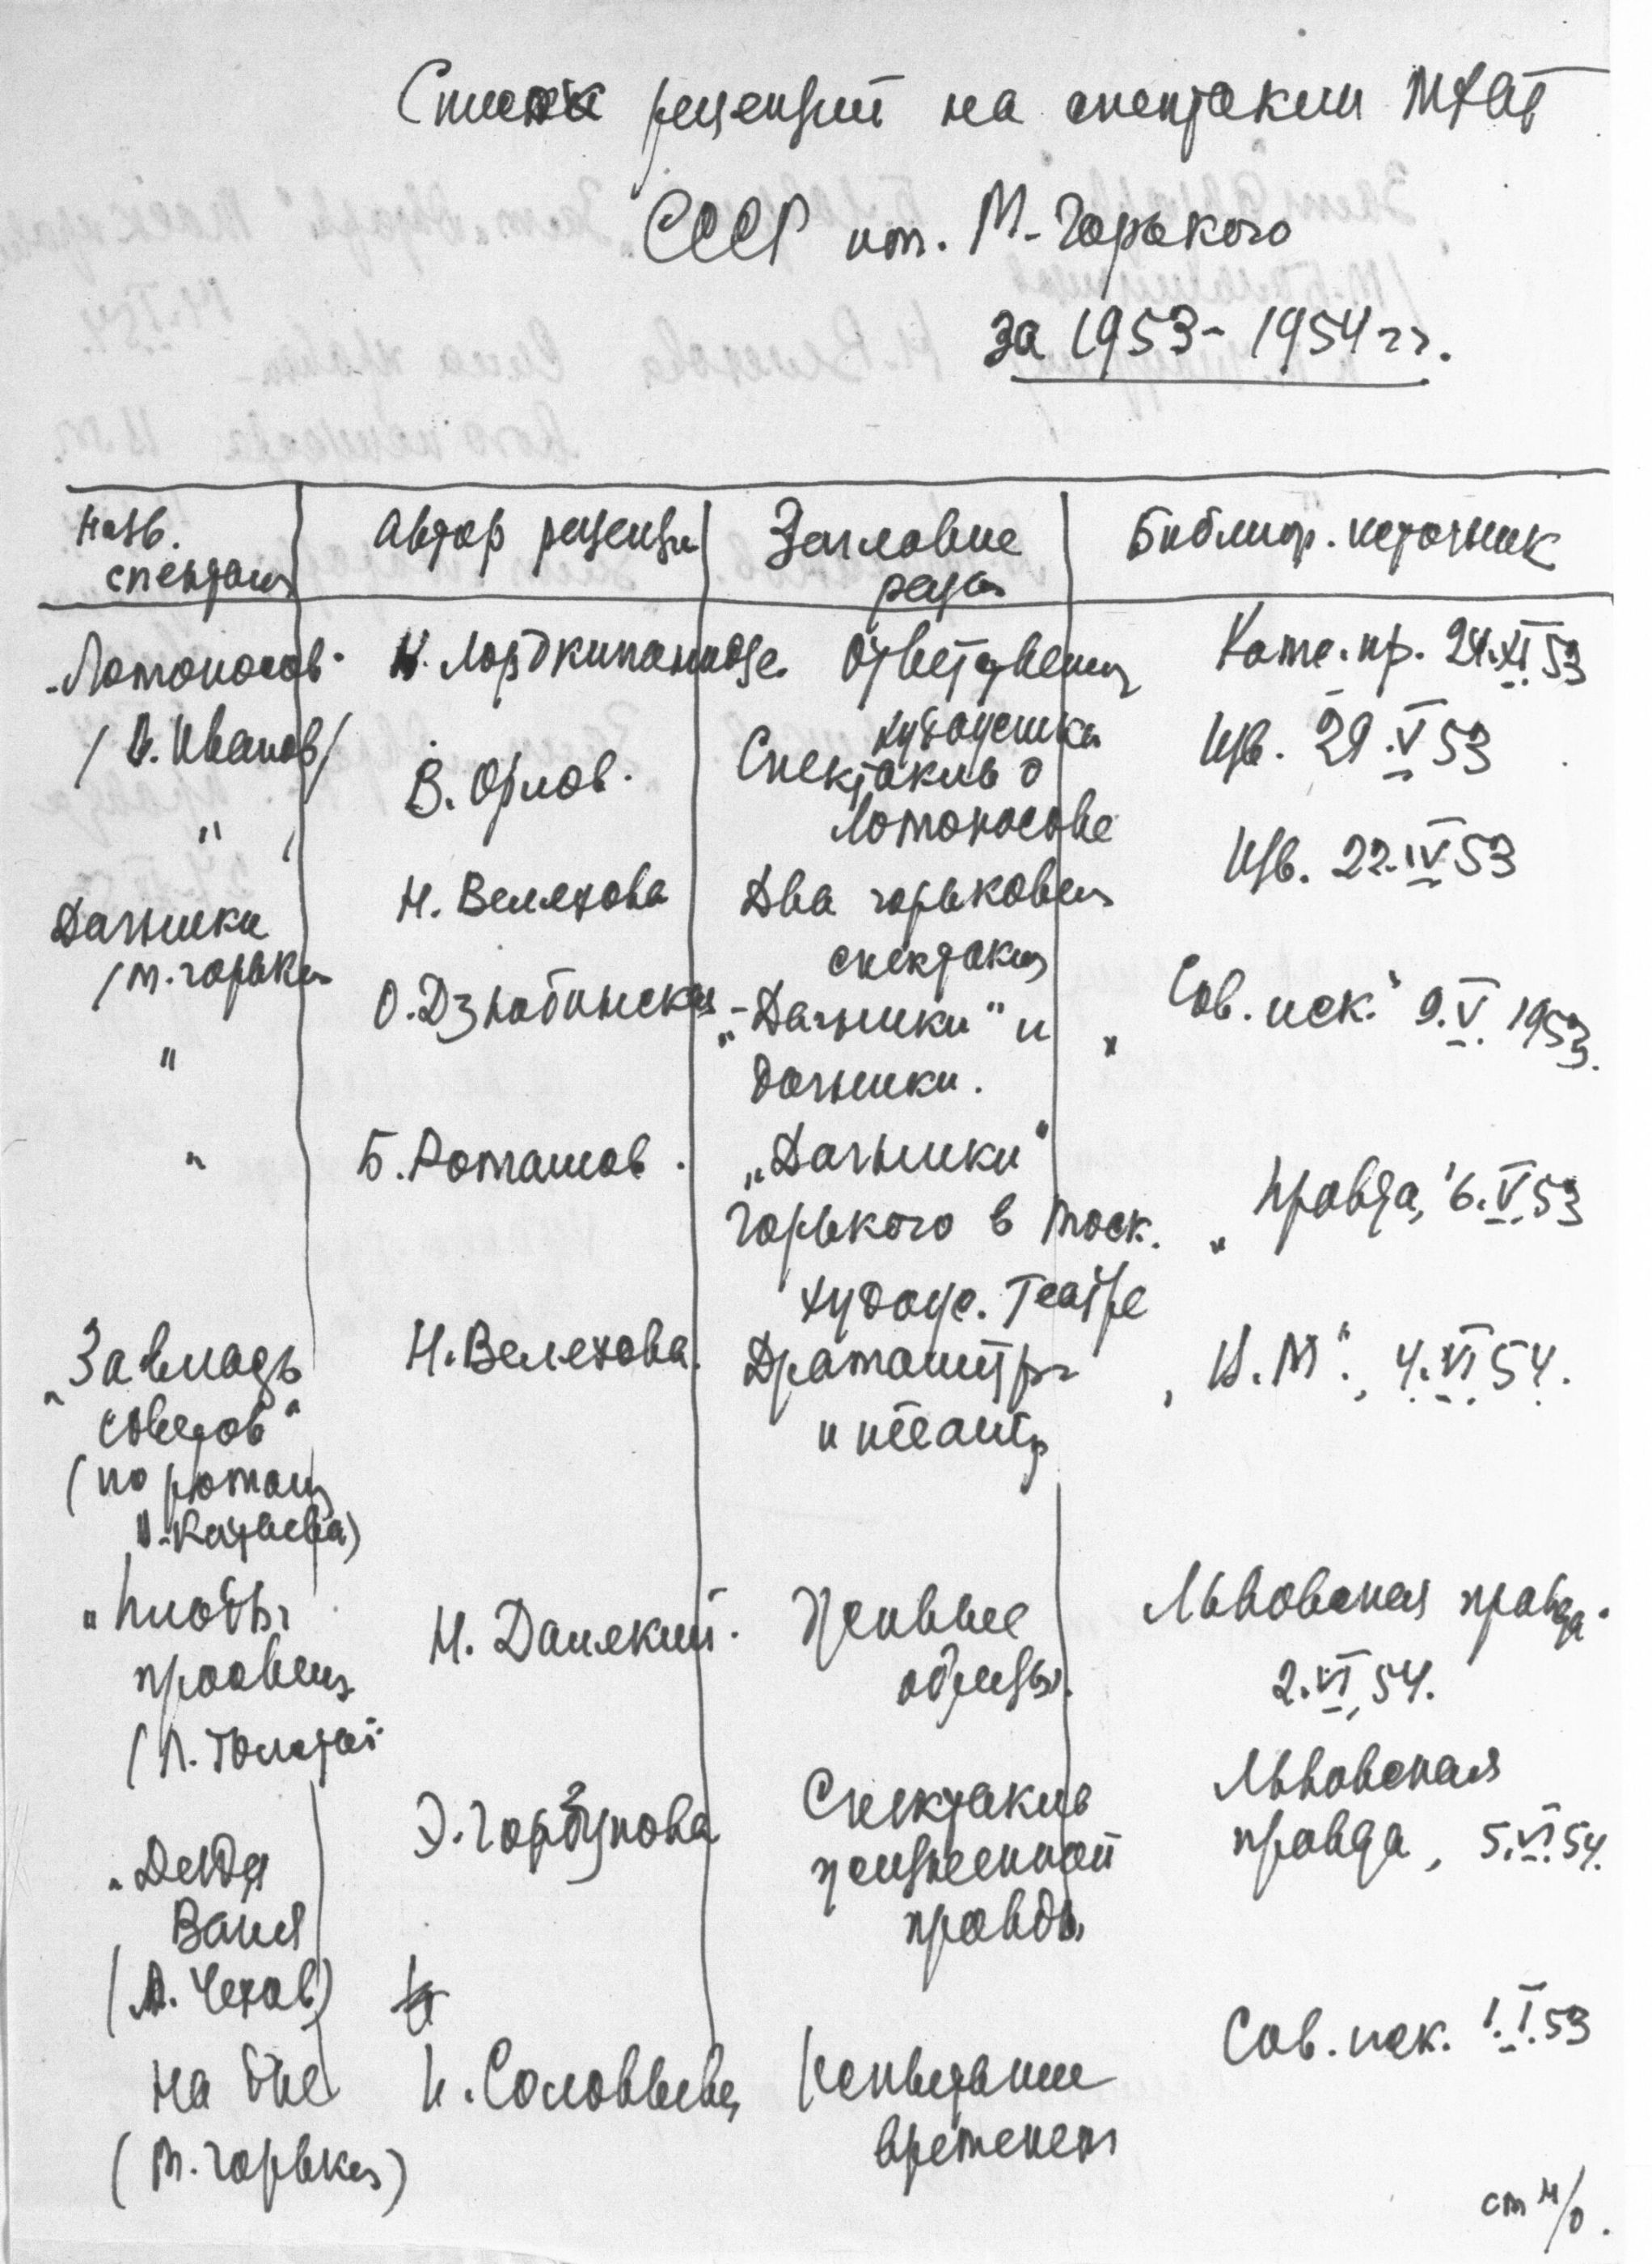 Список рецензий на спектакли МХАТ
СССР им. М. Горького
за 1953-1954 гг.
Назв. спектакля
Автор рецензии
Заглавие реценз.
Библиогр. источник
"Ломоносов"
/В. Иванов/
Н. Лордкипанидзе.
Ответственность художника
Комс. пр. 24.XI.53
"
В. Орлов.
Спектакль о
Ломоносове
Изв. 29.V 53
Дачники
/М. Горький
Н. Велехова
Два горьковских
спектакля
Изв. 22.IV 53
"
О. Дзюбинская
"Дачники" и
дачники.
"Сов. иск." 9.V. 1953.
"
Б. Ромашов.
"Дачники"
Горького в Моск.
Художе. Театре
"Правда," 6.V.53
"За власть
советов"
(по роману
В. Катаева)
Н. Велехова.
Драматург
и театр
"В.М"., 4.VI 54.
"Плоды
просвещ
(Л. Толстой
И. Далекий.
Цельные
образы.
Львовская правда.
2.VI.54.
"Дядя
Ваня
(А. Чехов)
Э. Горбунова
Спектакль
жизненной
правды
Львовская
правда, 5.VI.54.
На дне
(М. Горький)
И. Соловьева,
Испытание
временем
Сов. иск. 1.I.53
см н/о.